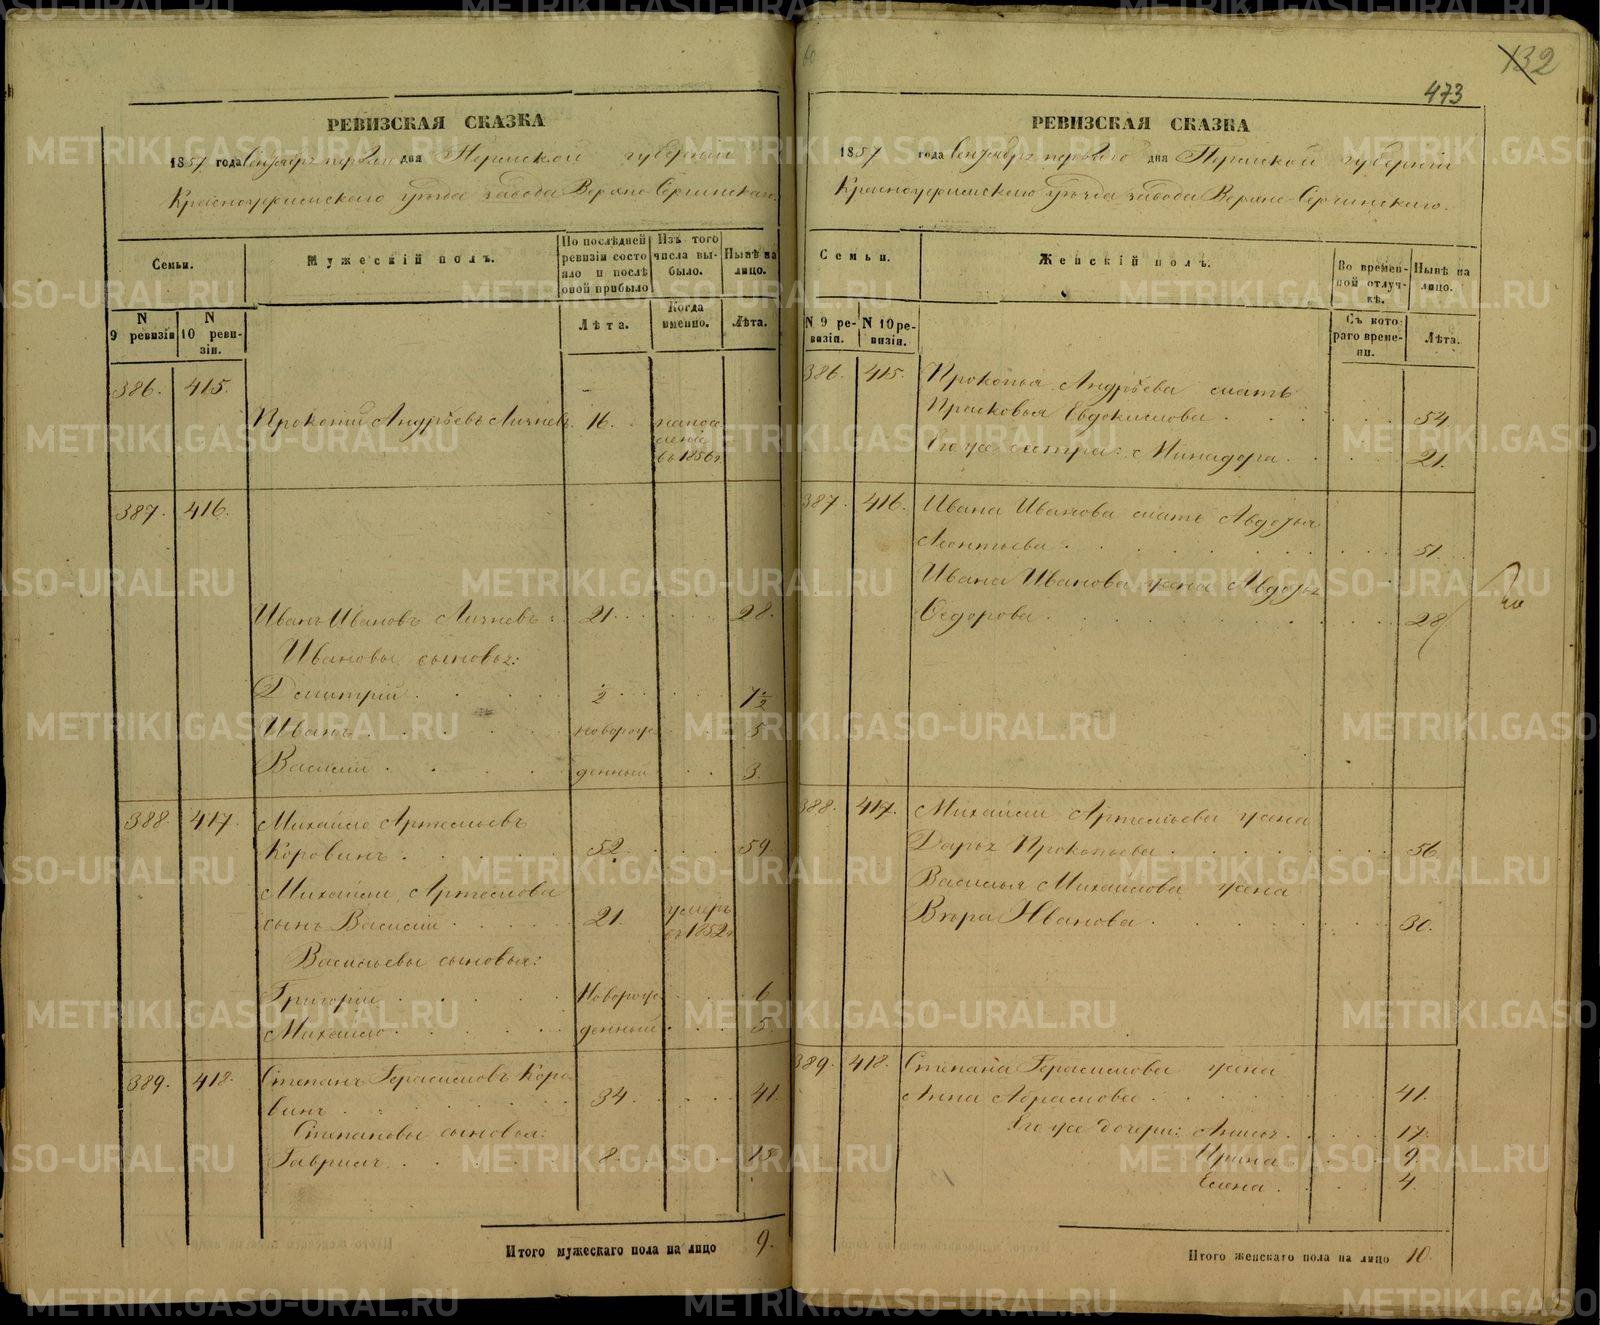 132
473
РЕВИЗСКАЯ СКАЗКА
1857 года Сентября первого дня Пермской губернiи
Красноуфимскаго уѣзда завода Верхно-Сергинскаго
Семьи.
Мужескiй полъ.
По послѣдней ревизiи состояло и послѣ оной прибыло
Изъ того числа выбыло.
Нынѣ на лицо.
N 9 ревизiи
N 10 ревизiи.
Лѣта.
Когда именно.
Лѣта.
386. 415.
Прокопiй Андрѣевъ 16.
въ 1856 г.
387. 416.
Иванъ Ивановъ 21. 28.
Ивановы сыновья:
Дмитрiй ½ 7½
Иванъ новорож 5
Василiй денный 3.
388 417. Михайло Артемьевъ
Коровинъ 52. 59.
Михайлы Артемьева
сынъ Василiй 21. умеръ въ 1852 г.
Васильевы сыновья:
Григорiй Новорож 6
Михайло денный 5.
389. 418. Степанъ Герасимовъ Коро
винъ 34. 41.
Степановы сыновья:
Гаврилъ 8.
Итого мужескаго пола на лицо 9.
РЕВИЗСКАЯ СКАЗКА
1857 года Сентября первого дня Пермской губернiи
Красноуфимскаго уѣзда завода Верхно-Сергинскаго.
Семьи.
Женскiй полъ.
Во временной отлучкѣ.
Нынѣ на лицо.
N 9 ревизiи.
N 10 ревизiи.
Съ котораго времени.
Лѣта.
386. 415. Прокопья Андрѣева мать
Прасковья Евдокимова 54
Его же сестра: Минадора 21.
387. 416. Ивана Иванова мать Авдотья
Леонтьева 51.
Ивана Иванова жена Авдотья
Федорова 28
388. 417. Михайлы Артемьева жена
Дарья Прокопьева 56
Василья Михайлова жена
Вѣра Иванова 30.
389. 418. Степана Герасимова жена
Анна Абрамова 41.
Его же дочери: Анисья 17.
Ирина 9
Елена 4.
Итого женскаго пола на лицо 10.
METRIKI.GASO-URAL.RU